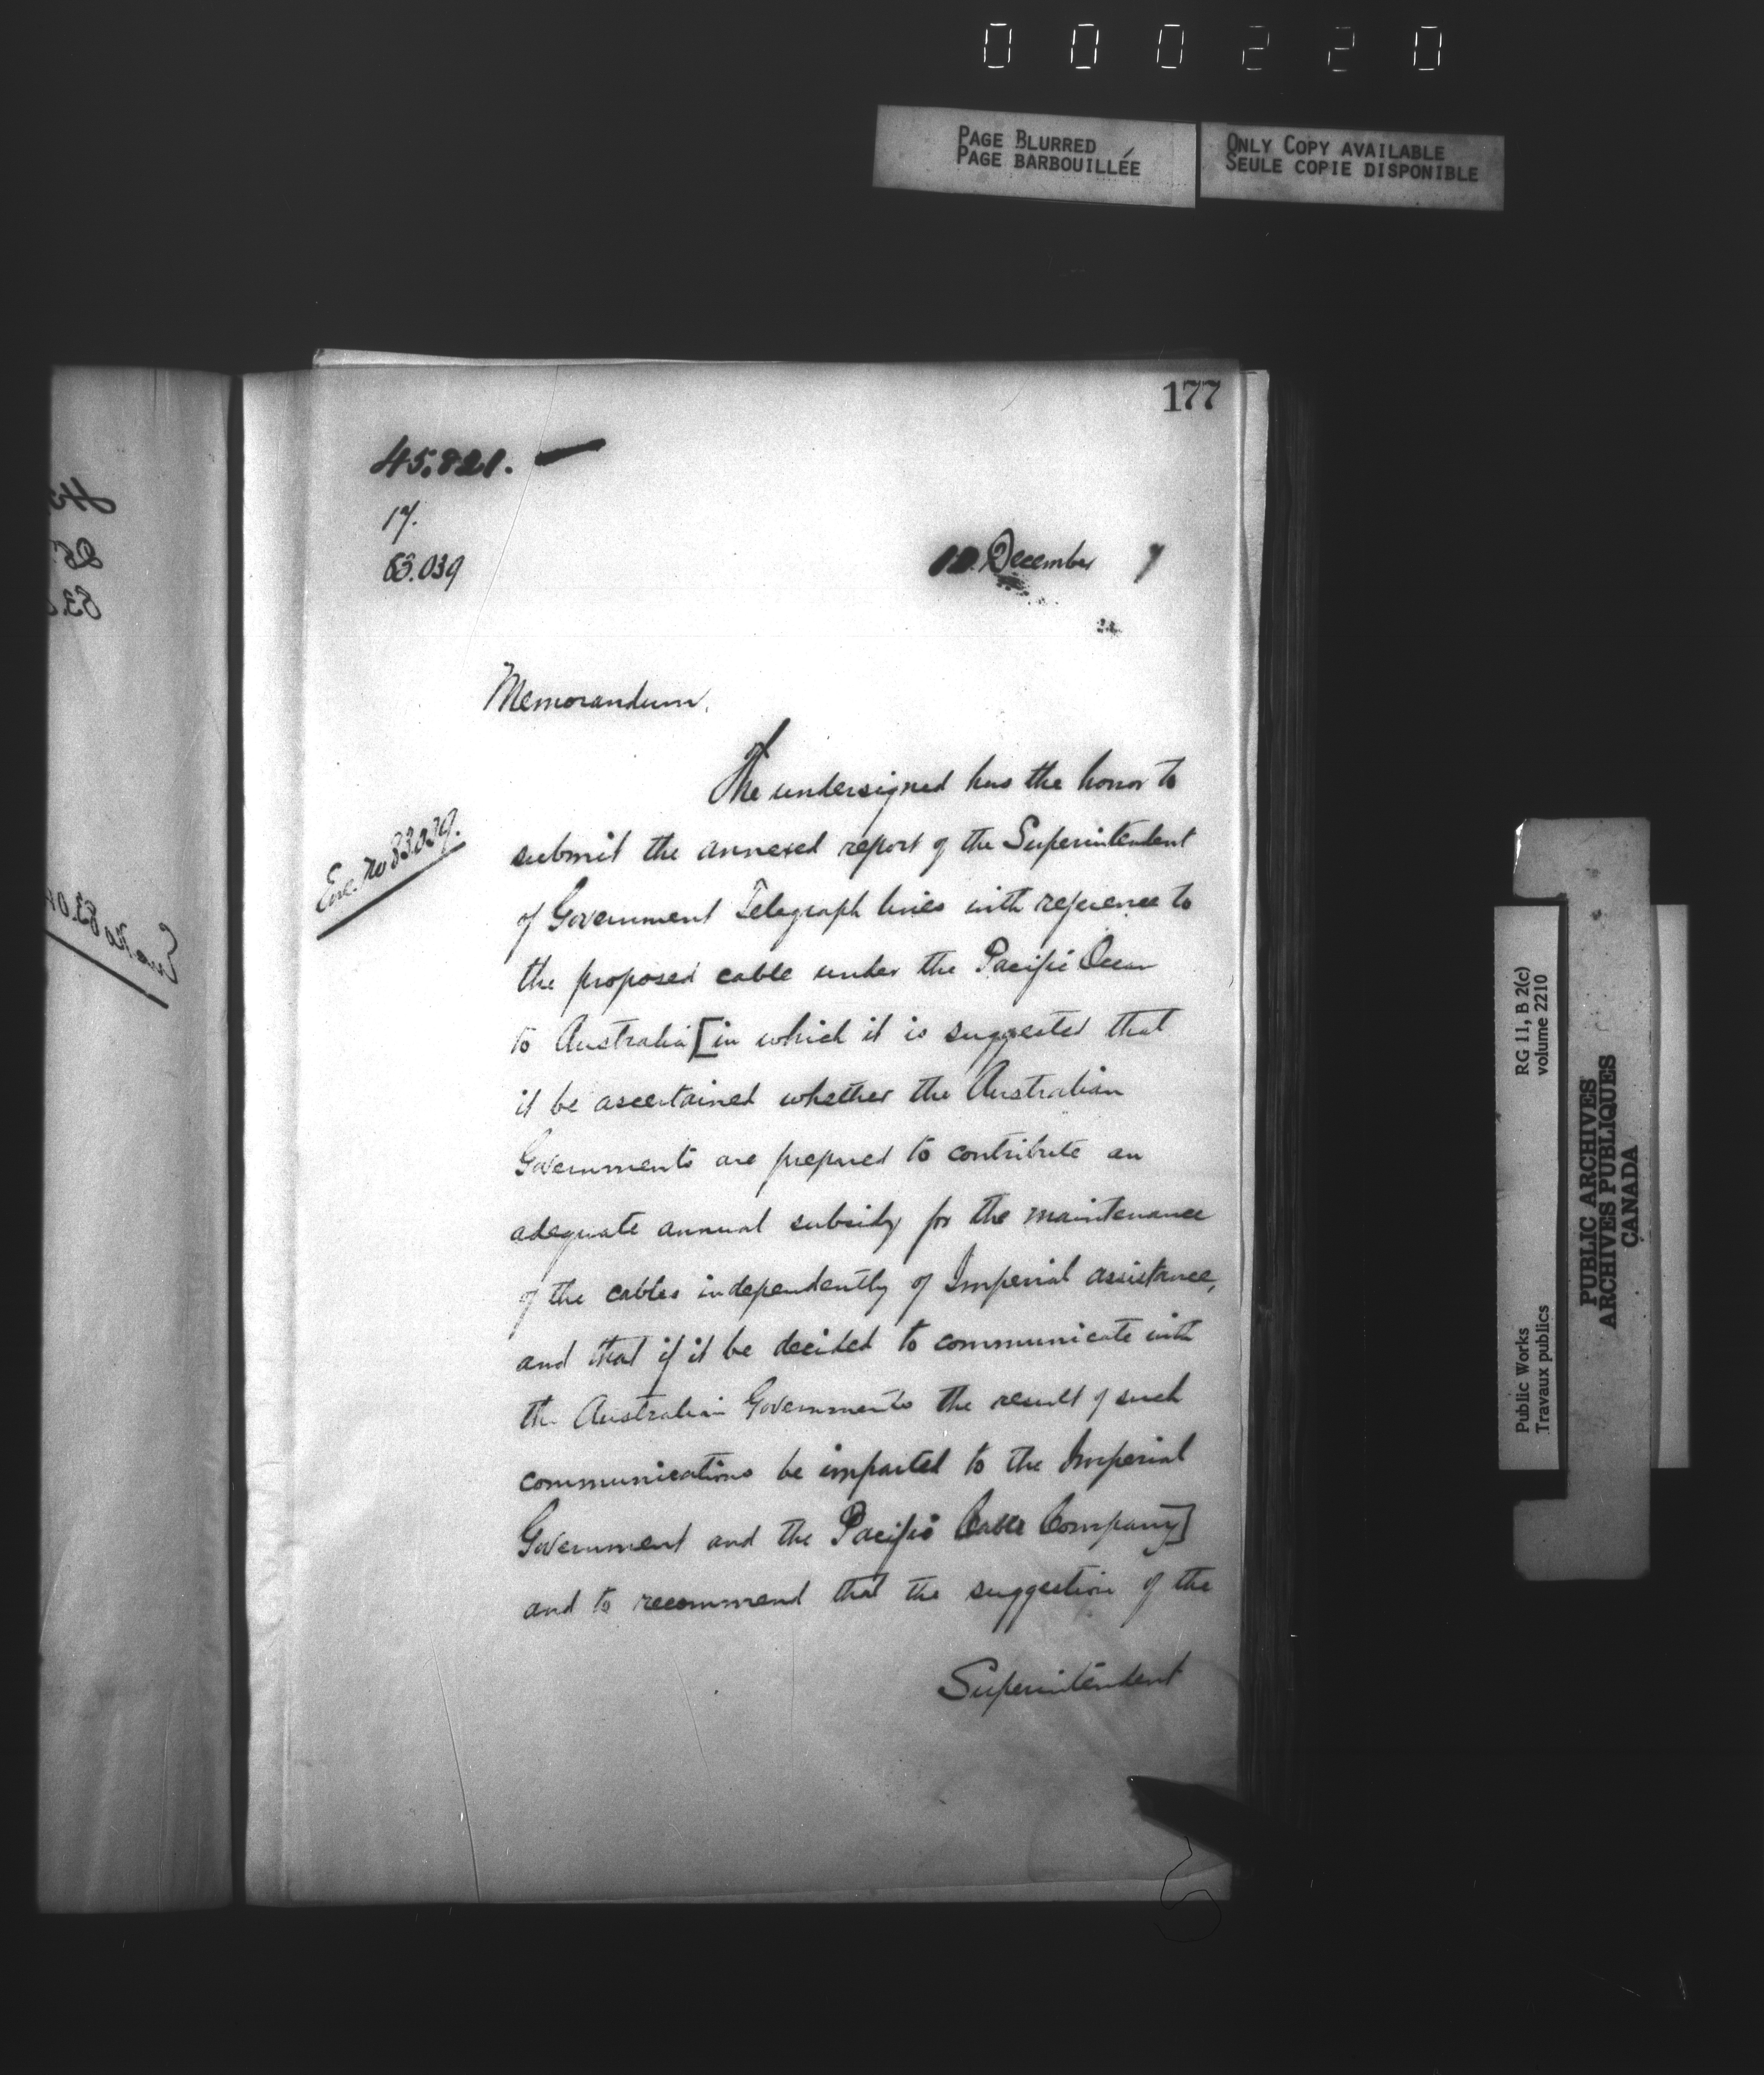 000220
PAGE BLURRED
PAGE BARBOUILLÉE
ONLY COPY AVAILABLE
SEULE COPIE DISPONIBLE
177
45.821.
17.
83.039
December 7
Memorandum.
The undersigned has the honor to
submit the annexed report of the Superintendent
of Government Telegraph lines with reference to
Enc. No 83.039.
the proposed cable under the Pacific Ocean
to Australia [in which it is suggested that
it be ascertained whether the Australian
Governments are prepared to contribute an
adequate annual subsidy for the maintenance
of the cables independently of Imperial assistance,
and that if it be decided to communicate with
the Australian Governments the result of such
communications be imparted to the Imperial
Government and the Pacific Cable Company]
and to recommend that the suggestion of the
Superintendent
RG 11, B 2(c)
volume 2210
Public Works
Travaux publics
PUBLIC ARCHIVES
ARCHIVES PUBLIQUES
CANADA